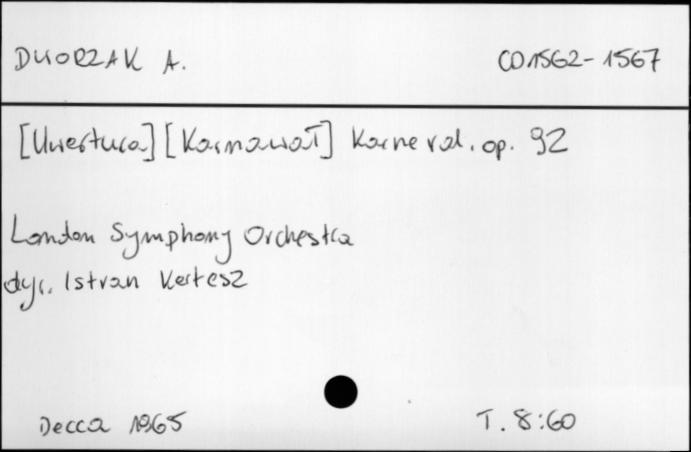 DWORZAK A. CD1562-1567
[Uwertura] [Karnawał] Karneval, op. 92
London Symphony Orchestra
dyr. Istvan Kertesz
Decca 1965 T. 8:60